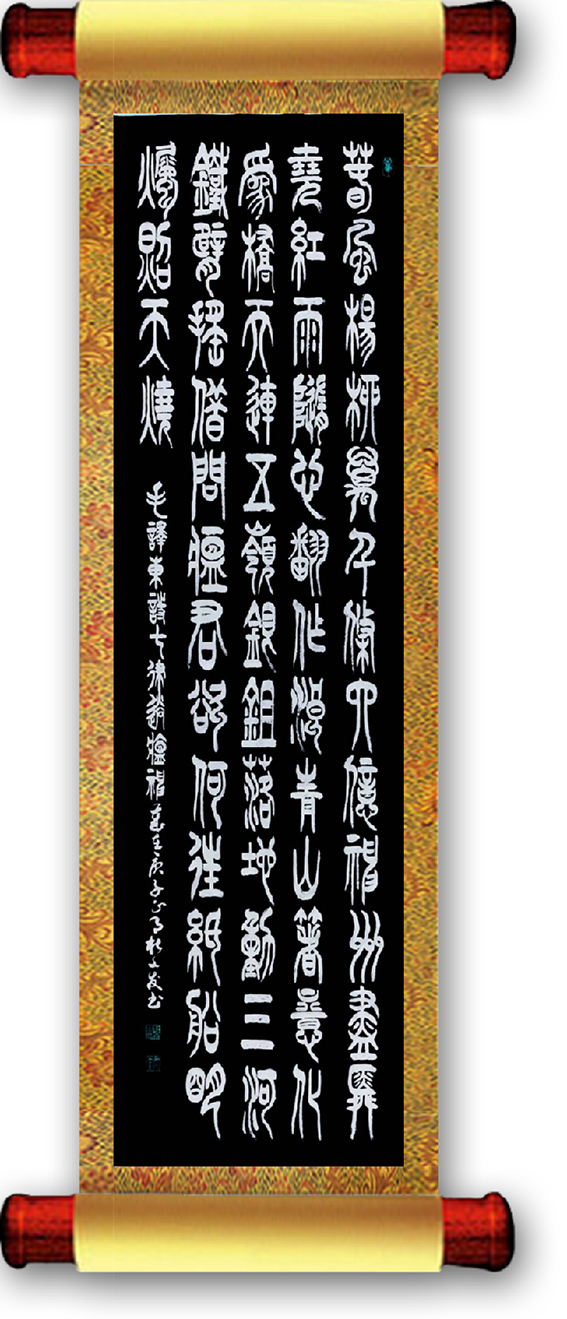 萅風楊柳萬千條六億神州盡舜
堯紅雨隨心翻作浪青山著意化
爲橋天連五嶺銀鉏落地動三河
鐵臂搖借問瘟君欲何往紙船明
燭照天燒
毛澤東詩七律送瘟神 歲在庚子正月